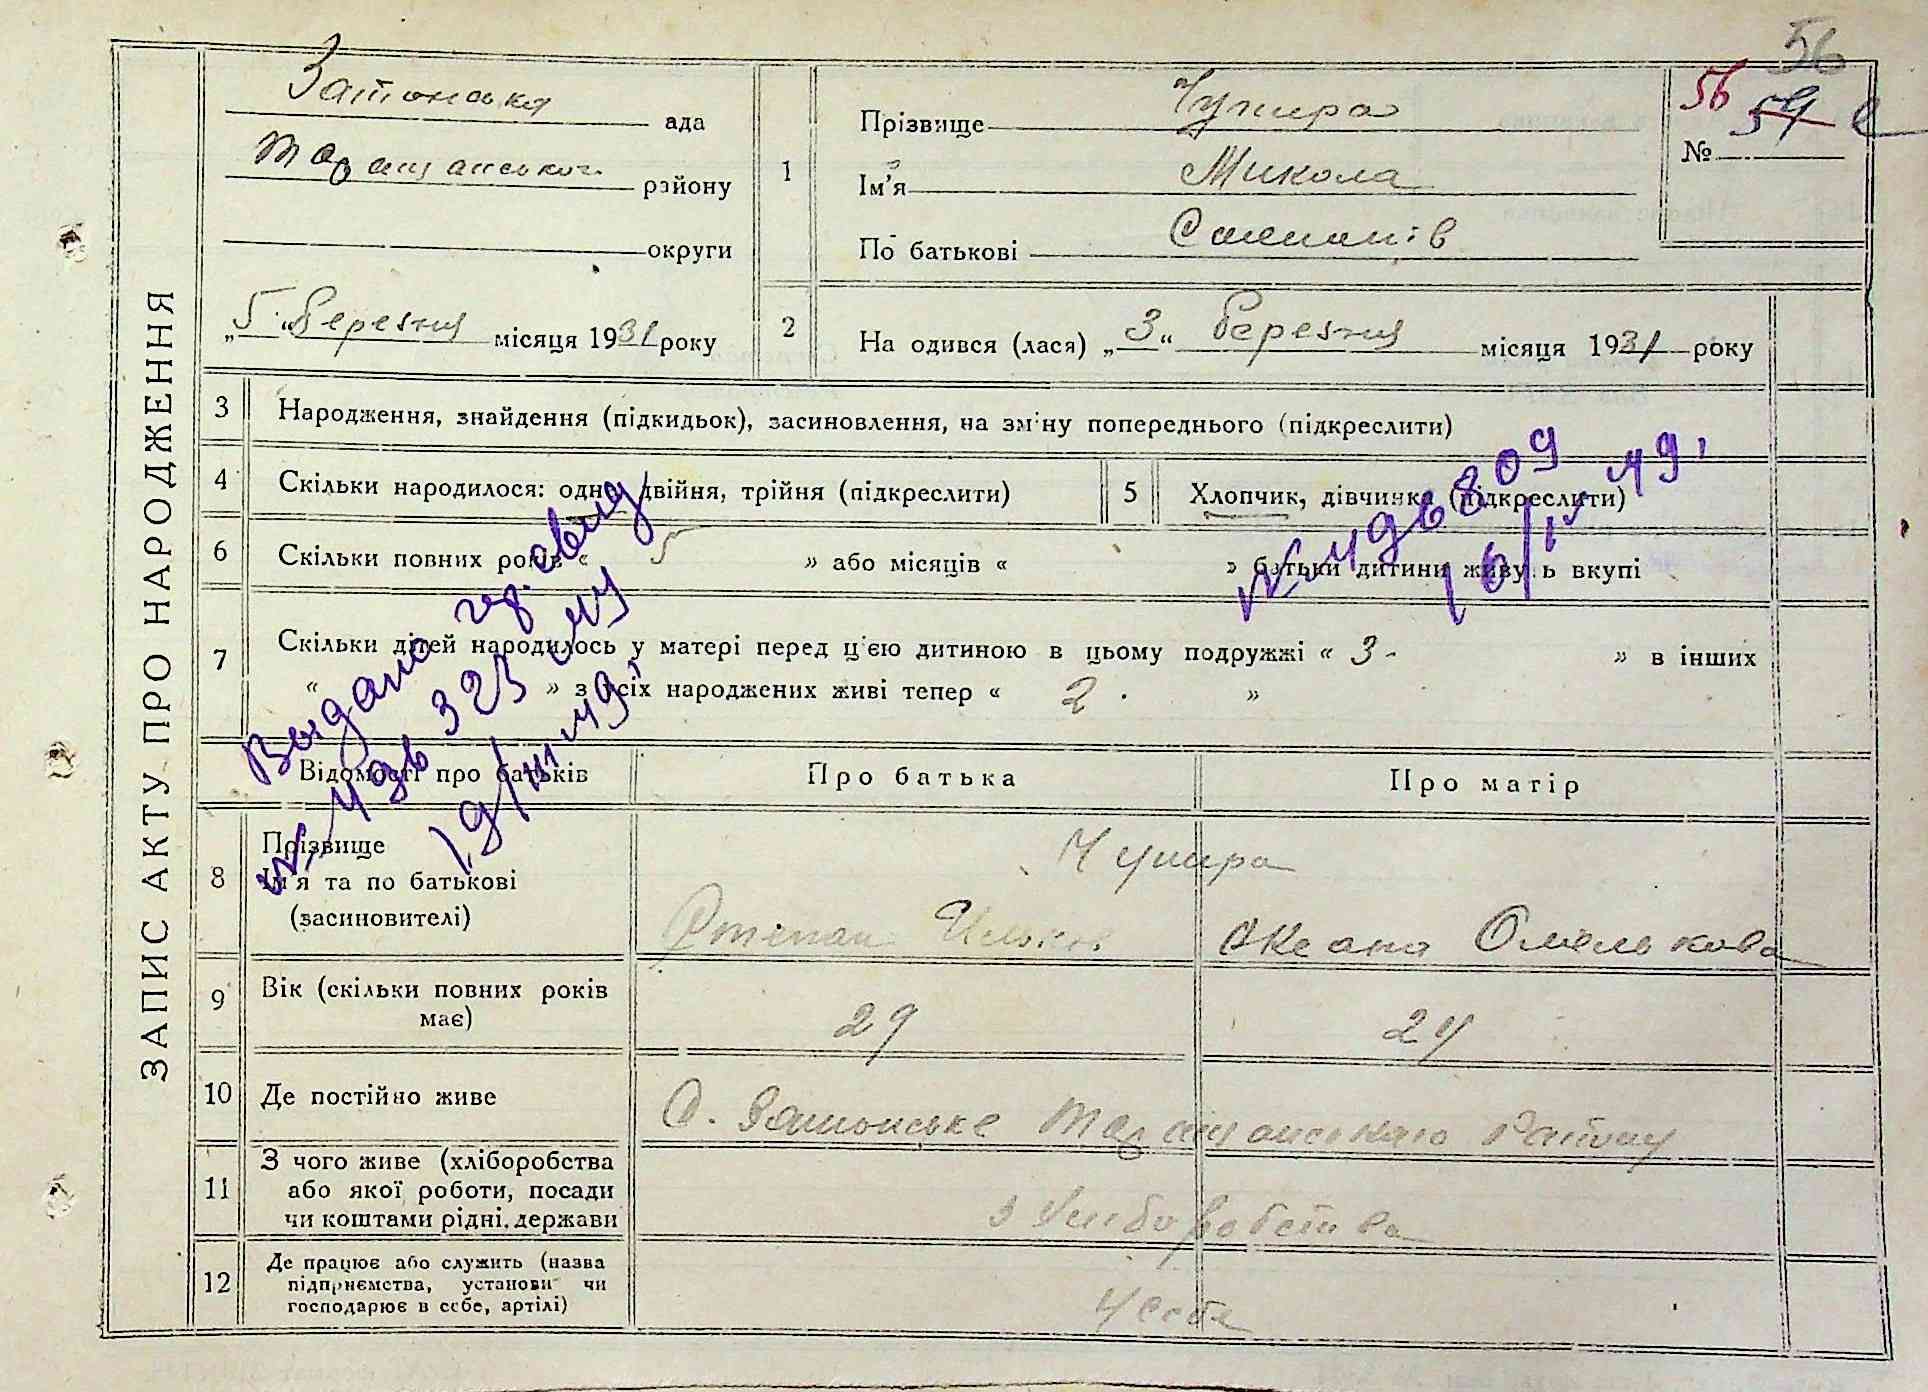 56
56 59
№
ЗАПИС АКТУ ПРО НАРОДЖЕННЯ
Затонська ада
Таращанського району
округи
„5“ березня місяця 1931 року
1
Прізвище
Ім'я Микола
По батькові
2
На одився (лася) „3“ березня місяця 1931 року
3 Народження, знайдення (підкидьок), засиновлення, на зміну попереднього (підкреслити)
4 Скільки народилося: одно, двійня, трійня (підкреслити)
5 Хлопчик, дівчинка (підкреслити)
6 Скільки повних років « 5 » або місяців « » батьки дитини живуть вкупі
7 Скільки дітей народилось у матері перед цією дитиною в цьому подружжі « 3 - » в інших
« » з усіх народжених живі тепер « 2 . »
Выдано
19/III 49
Відомості про батьків
Про батька
Про матір
8 Прізвище
Ім'я та по батькові
(засиновителі)
Оксана Омелькова
9 Вік (скільки повних років
має)
29
24
10 Де постійно живе
С. Затонське Таращанського Району
11 З чого живе (хліборобства
або якої роботи, посади
чи коштами рідні, держави
з хліборобства
12 Де працює або служить (назва
підприємства, установи чи
господарює в себе, артілі)
У себе